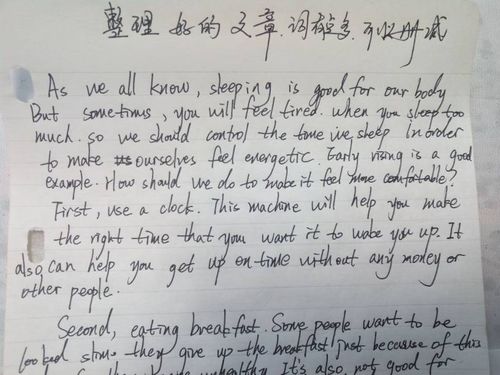 整理好的文章.词有点多.可以删减
As we all know, sleeping is good for our body
But sometimes, you will feel tired. when you sleep too
much. so we should control the time we sleep in order
to make ourselves feel energetic. Early rising is a good
example. How should we do to make it feel more comfortable?
First, use a clock. This machine will help you make
the right time that you want it to wake you up. It
also can help you get up on time without any money or
other people.
Second, eating breakfast. Some people want to be
looked slim. they give up the breakfast just because of this
unhealthy It's also not good for